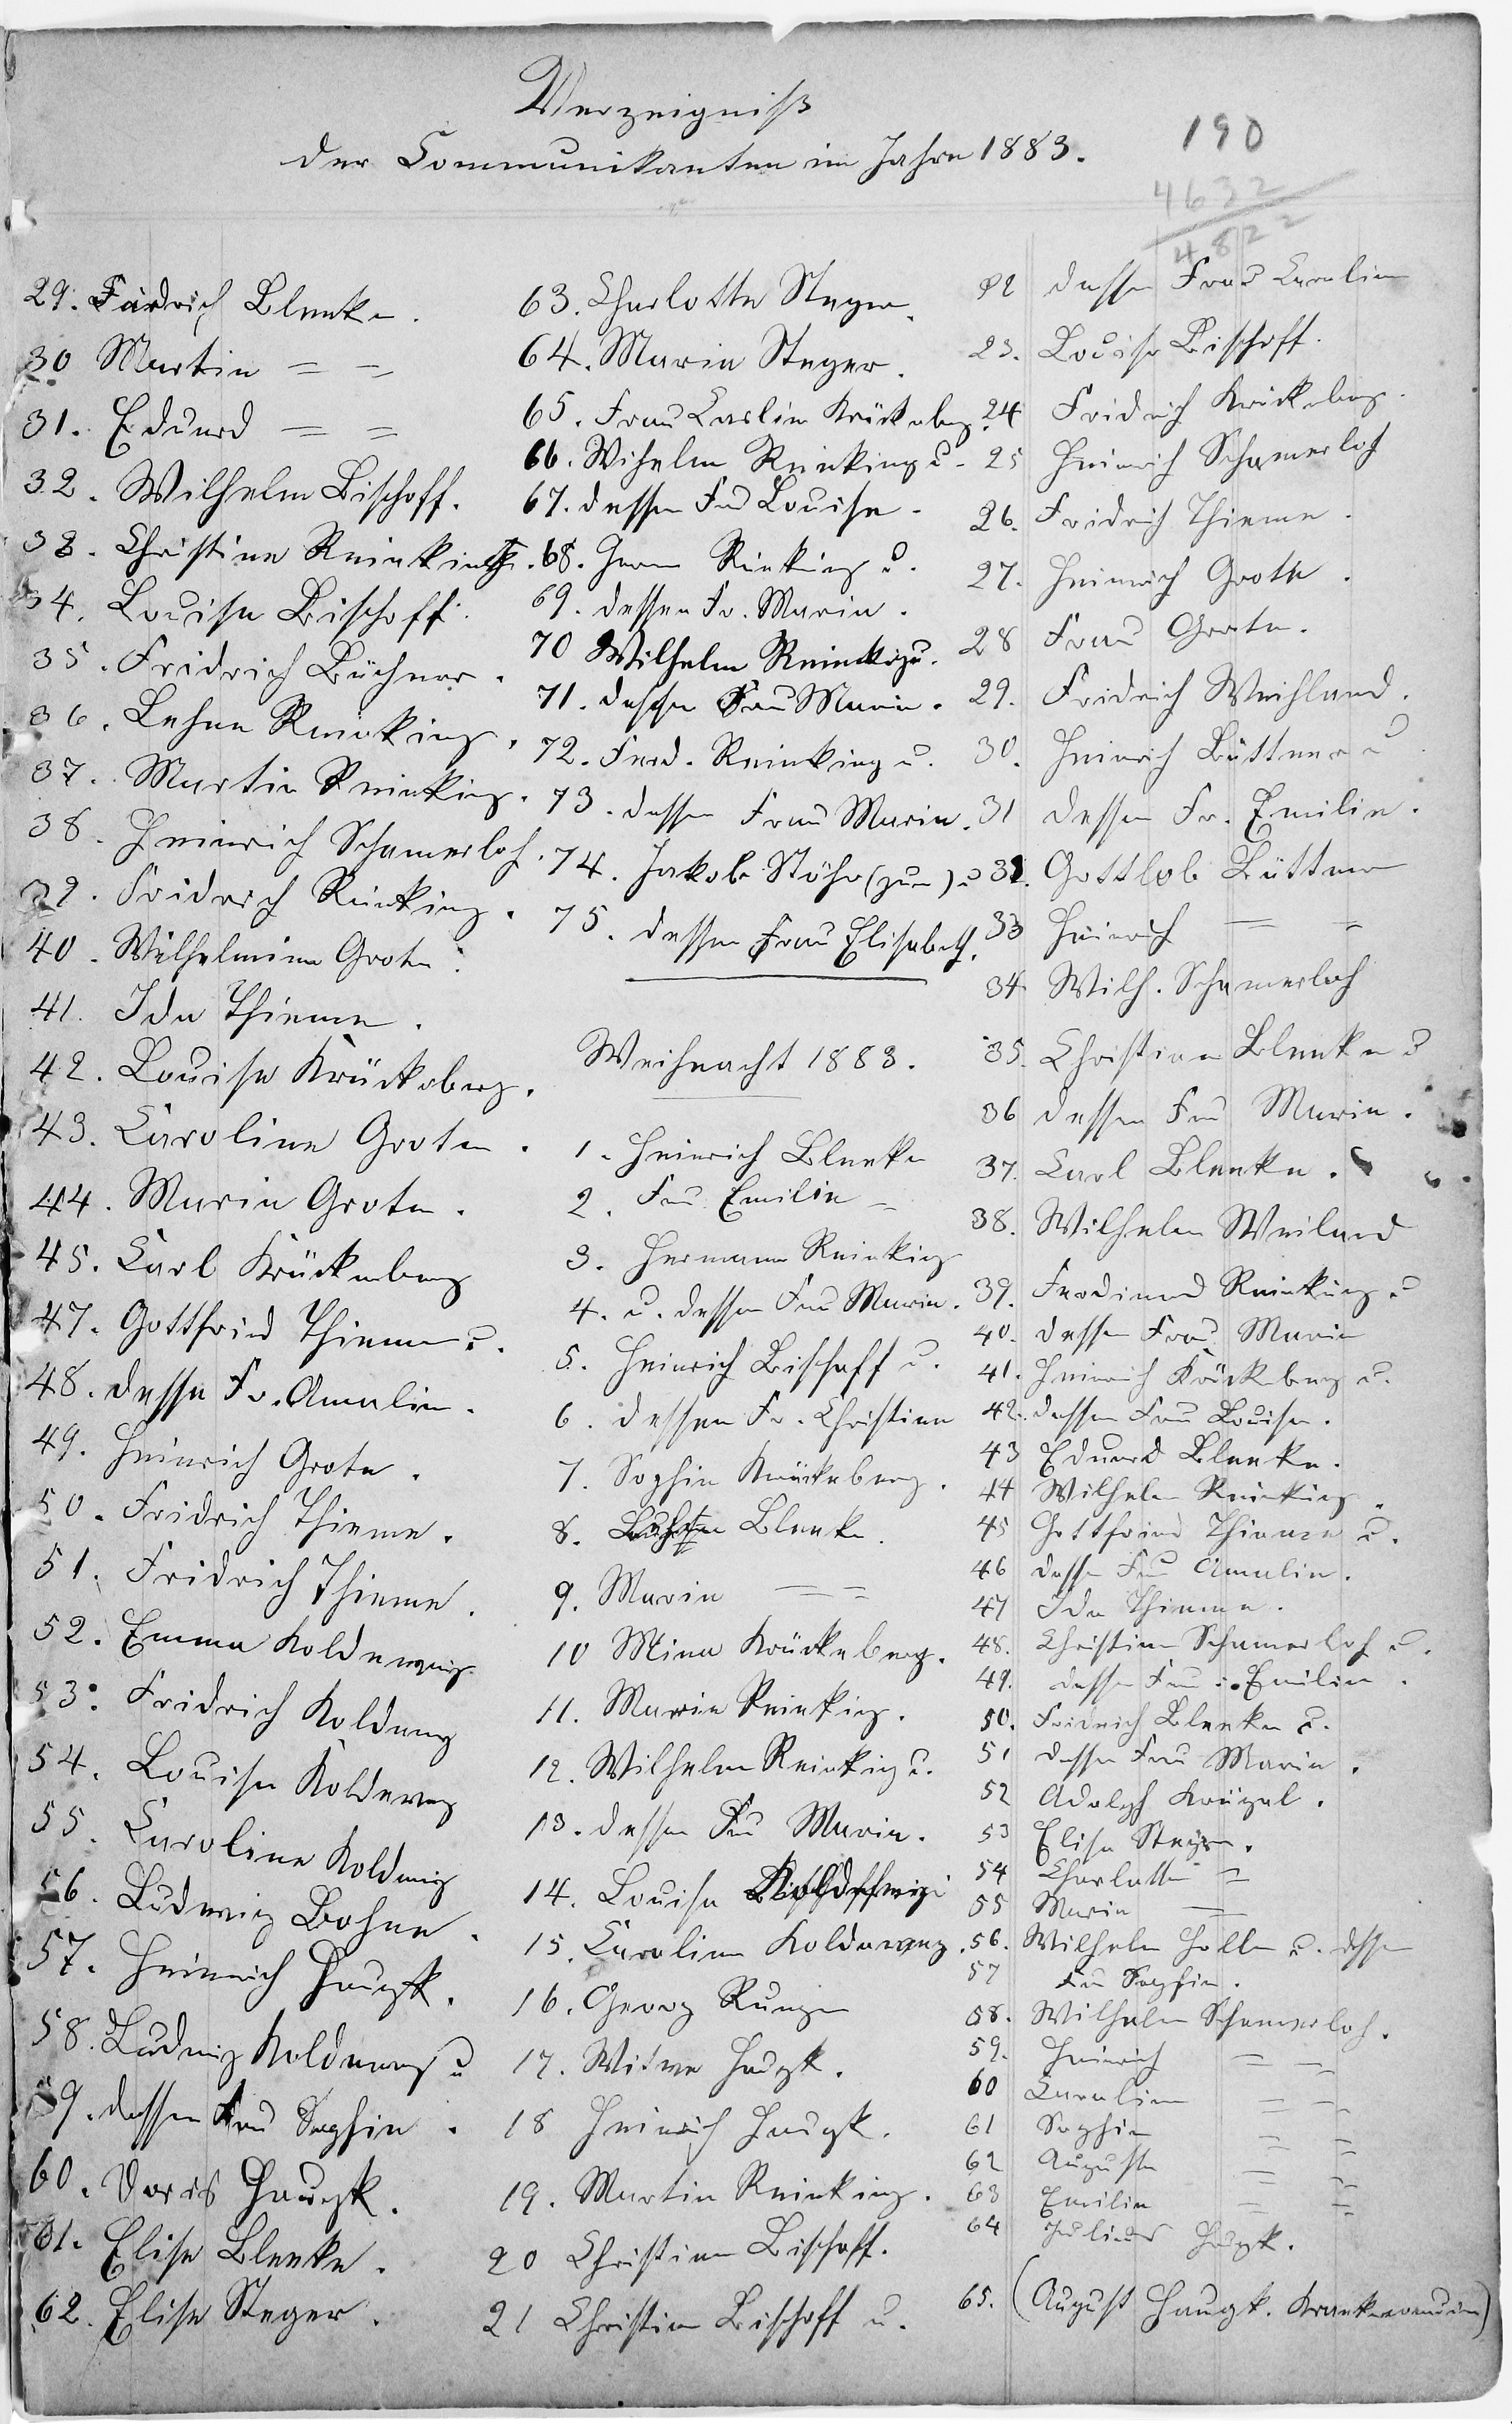 Verzeigniß
der Communikanten im Jahre 1883.
190
4632
4822
29. Fridrich Blenke.
30 Martin = =
31. Eduard = =
32. Wilhelm Bischoff.
33. Christine Reinking.
34. Louise Bischoff.
35. Fridrich Büchner.
36. Lehne Reinking.
37. Martin Reinking.
38. Heinrich Schamerloh.
39. Fridrich Reinking.
40. Wilhelmine Grote.
41. Ida Thieme.
42. Louise Krückeberg.
43. Caroline Grote.
44. Marie Grote.
45. Carl Krückeberg
47. Gottfried Thieme u.
48. dessen Fr. Amalie.
49. Heinrich Grote.
50. Fridrich Thieme.
51. Fridrich Thieme.
52. Emma Koldeweg
53. Fridrich Koldeweg
54. Louise Koldeweg
55. Caroline Koldeweg
56. Ludwig Bohne.
57. Heinrich Haugk.
58. Ludwig Koldeweg u
59. dessen Frau Sophie.
60. Doris Haugk.
61. Elise Blenke.
62. Elise Steger.
63. Charlotte Steger.
64. Marie Steger.
65. Frau Carline Krückeberg.
66. Wihelm Reinking u.
67. dessen Frau Louise.
68. Herm Reinking u.
69. dessen Fr. Marie.
70 Wilhelm Reinking u.
71. dessen Frau Marie.
72. Ferd. Reinking u.
73. dessen Frau Marie.
74. Jakob Stöhr (jun) u
75. dessen Frau Elisabeth.
Weihnacht 1883.
1. Heinrich Blenke
2. Frau Emilie =
3. Hermann Reinking
4. u. dessen Frau Marie.
5. Heinrich Bischoff u.
6. dessen Fr. Christine
7. Sophie Krückeberg.
8. Blenke.
9. Marie = =
10 Mina Krückeberg.
11. Marie Reinking.
12. Wilhelm Reinking u.
13. dessen Frau Marie.
14. Louise
15. Caroline Koldeweg.
16. Georg Runge
17. Witwe Haugk.
18 Heinrich Haugk.
19. Martin Reinking.
20 Christine Bischoff.
21 Christian Bischoff u.
22 dessen Frau Caroline
23. Louise Bischoff.
24 Fridrich Krückeberg.
25 Heinrich Schamerloh
26. Fridrich Thieme.
27. Heinrich Grote.
28 Frau Grote.
29. Fridrich Weihland.
30. Heinrich Büttner u
31 dessen Fr. Emilie.
32. Gottlob Büttner
33 Heinrich = =
34 Wilh. Schamerloh
35. Christian Blenke u
36 dessen Frau Marie.
37. Carl Blenke.
38. Wilhelm Weiland
39. Ferdinand Reinking u
40. dessen Frau Marie
41. Heinrich Krückeberg u.
42. dessen Frau Louise.
43 Eduard Blenke.
44 Wilhelm Reinking.
45 Gottfried Thieme u.
46 dessen Frau Amalie.
47 Ida Thieme.
48. Christian Schamerloh u.
49. dessen Frau Emilie.
50. Fridrich Blenke u.
51 dessen Frau Marie.
52 Adolph Krügel.
53 Elise Steger.
54 Charlotte =
55 Marie =
56. Wilhelm Holle u. dessen
57 Frau Sophie.
58. Wilhelm Schamerloh.
59. Heinrich = =
60 Caroline = =
61 Sophie = =
62 Auguste = =
63 Emilie = =
64 Julius Haugk.
65. (August Haugk.